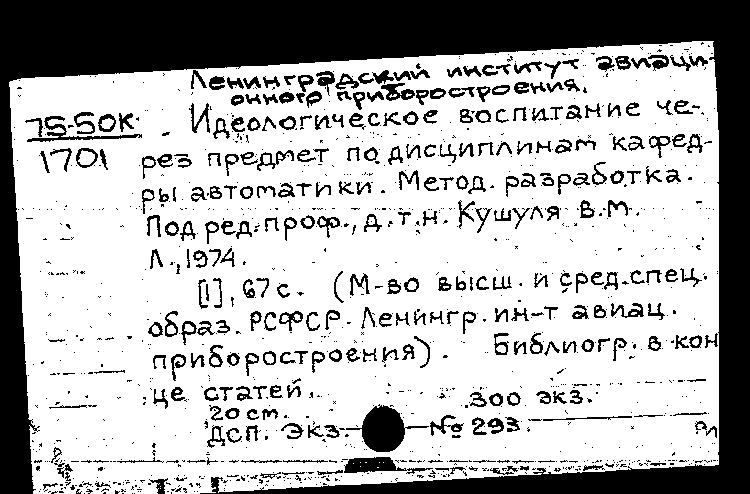 Ленинградский институт авиаци-
онного приборостроения.
75-50К Идеологическое воспитание че-
1701 рез предмет по дисциплинам кафед-
ры автоматики. Метод. разработка.
Под ред. проф., д.т.н. Кушуля В.М.
Л., 1974.
[1], 67 с. (М-во высш. и сред. спец.
образ. РСФСР. Ленингр. ин-т авиац.
приборостроения). Библиогр. в кон
це статей.
20 см. 300 экз.
ДСП. Экз. № 293.